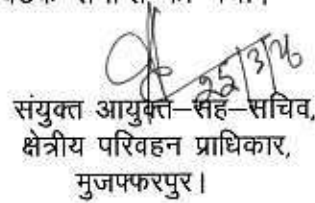 25/3/26
संयुक्त आयुक्त–सह–सचिव,
क्षेत्रीय परिवहन प्राधिकार,
मुजफ्फरपुर।